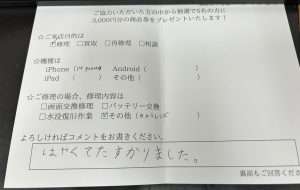 ご協力いただいた方の中から抽選で5名の方に
3,000円分の商品券をプレゼントいたします!
☆ご来店目的は
☑修理 □買取 □再修理 □相談
☆機種は
iPhone ( ) Android ( )
iPad ( ) その他 ( )
☆ご修理の場合、修理内容は
□画面交換修理 □バッテリー交換
□水没復旧作業 ☑その他 ( )
よろしければコメントをお書きください。
はやくてたすかりました。
裏面もご回答くださ